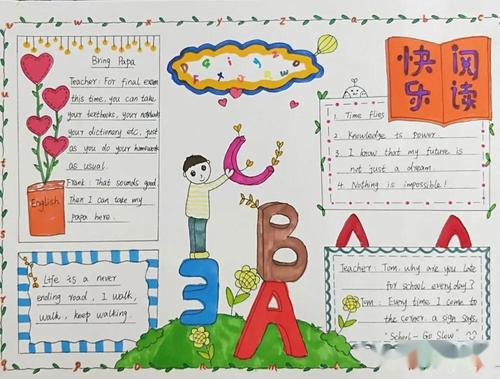 Bring Papa
Teacher: For final exam
this time, you can take
your textbooks, your notebooks
your dictionary etc, just
as you do your homework
as usual.
Frank: That sounds good.
Then I can take my
papa here.
English
Life is a never
ending road, I walk,
walk, keep walking.
C
B
A
快乐
阅读
1. Time flies
2. Knowledge is power.
3. I know that my future is
not just a dream.
4. Nothing is impossible!
Teacher: Tom, why are you late
for school every day?
Tom: Every time I come to
the corner, a sign says,
"School - Go Slow"